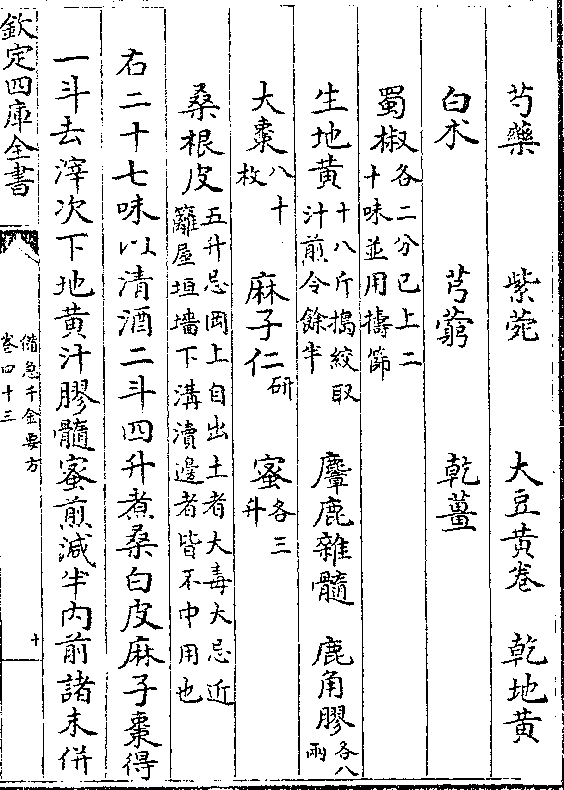 芍藥　紫菀　大豆黄卷　乾地黄
白朮　芎藭　乾薑
蜀椒各二分已上二十味並用擣篩
生地黄十八斤搗絞取汁煎令餘半　麞鹿雜髓　鹿角膠各八兩
大棗八十枚　麻子仁研　蜜各三升
桑根皮五升忌岡上自出土者大毒大忌近籬屋垣墻下溝瀆邊者皆不中用也
右二十七味以清酒二斗四升煮桑白皮麻子棗得
一斗去滓次下地黄汁膠髓蜜煎減半内前諸末併
欽定四庫全書
備急千金要方
卷四十三
十